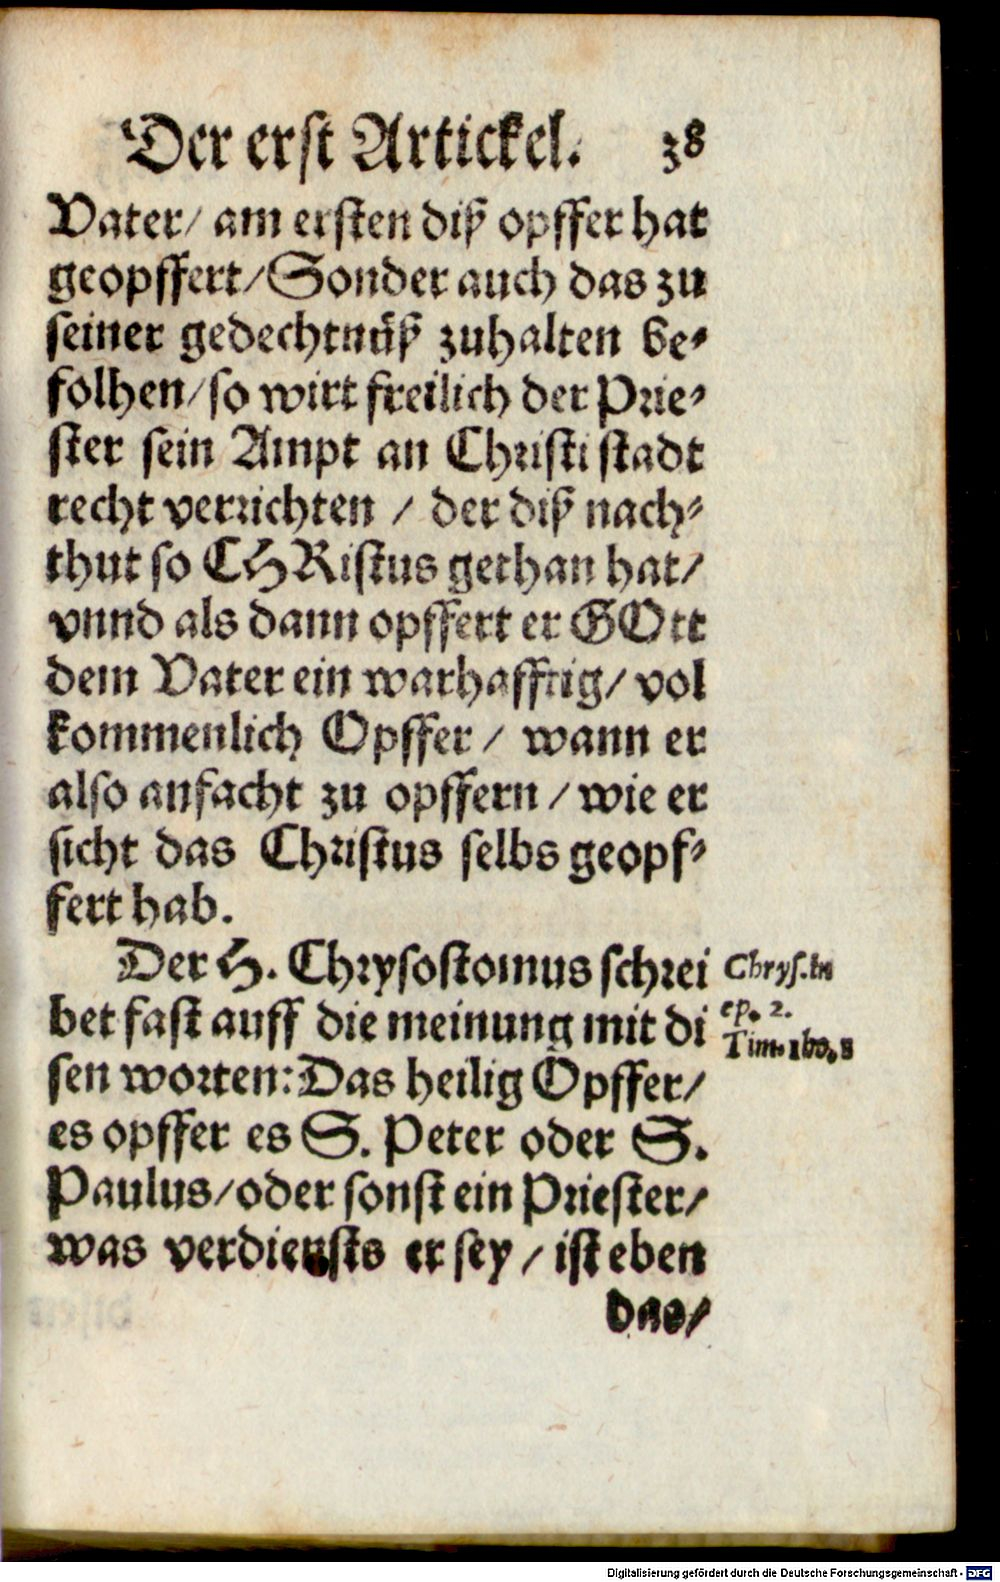 Der erst Artickel. 38
Vater/ am ersten diß opffer hat
geopffert/Sonder auch das zu
seiner gedechtnüß zuhalten be-
folhen/so wirt freilich der Prie-
ster sein Ampt an Christi stadt
recht verrichten / der diß nach-
thut so CHRistus gethan hat/
vnnd als dann opffert er GOtt
dem Vater ein warhafftig/ vol
kommenlich Opffer / wann er
also anfacht zu opffern / wie er
sicht das Christus selbs geopf-
fert hab.
Der H. Chrysostomus schrei
bet fast auff die meinung mit di
sen worten: Das heilig Opffer/
es opffer es S. Peter oder S.
Paulus/oder sonst ein Priester/
was verdiensts er sey / ist eben
das/
Chrys. in
ep. 2.
Tim. ho. 8
Digitalisierung gefördert durch die Deutsche Forschungsgemeinschaft - DFG